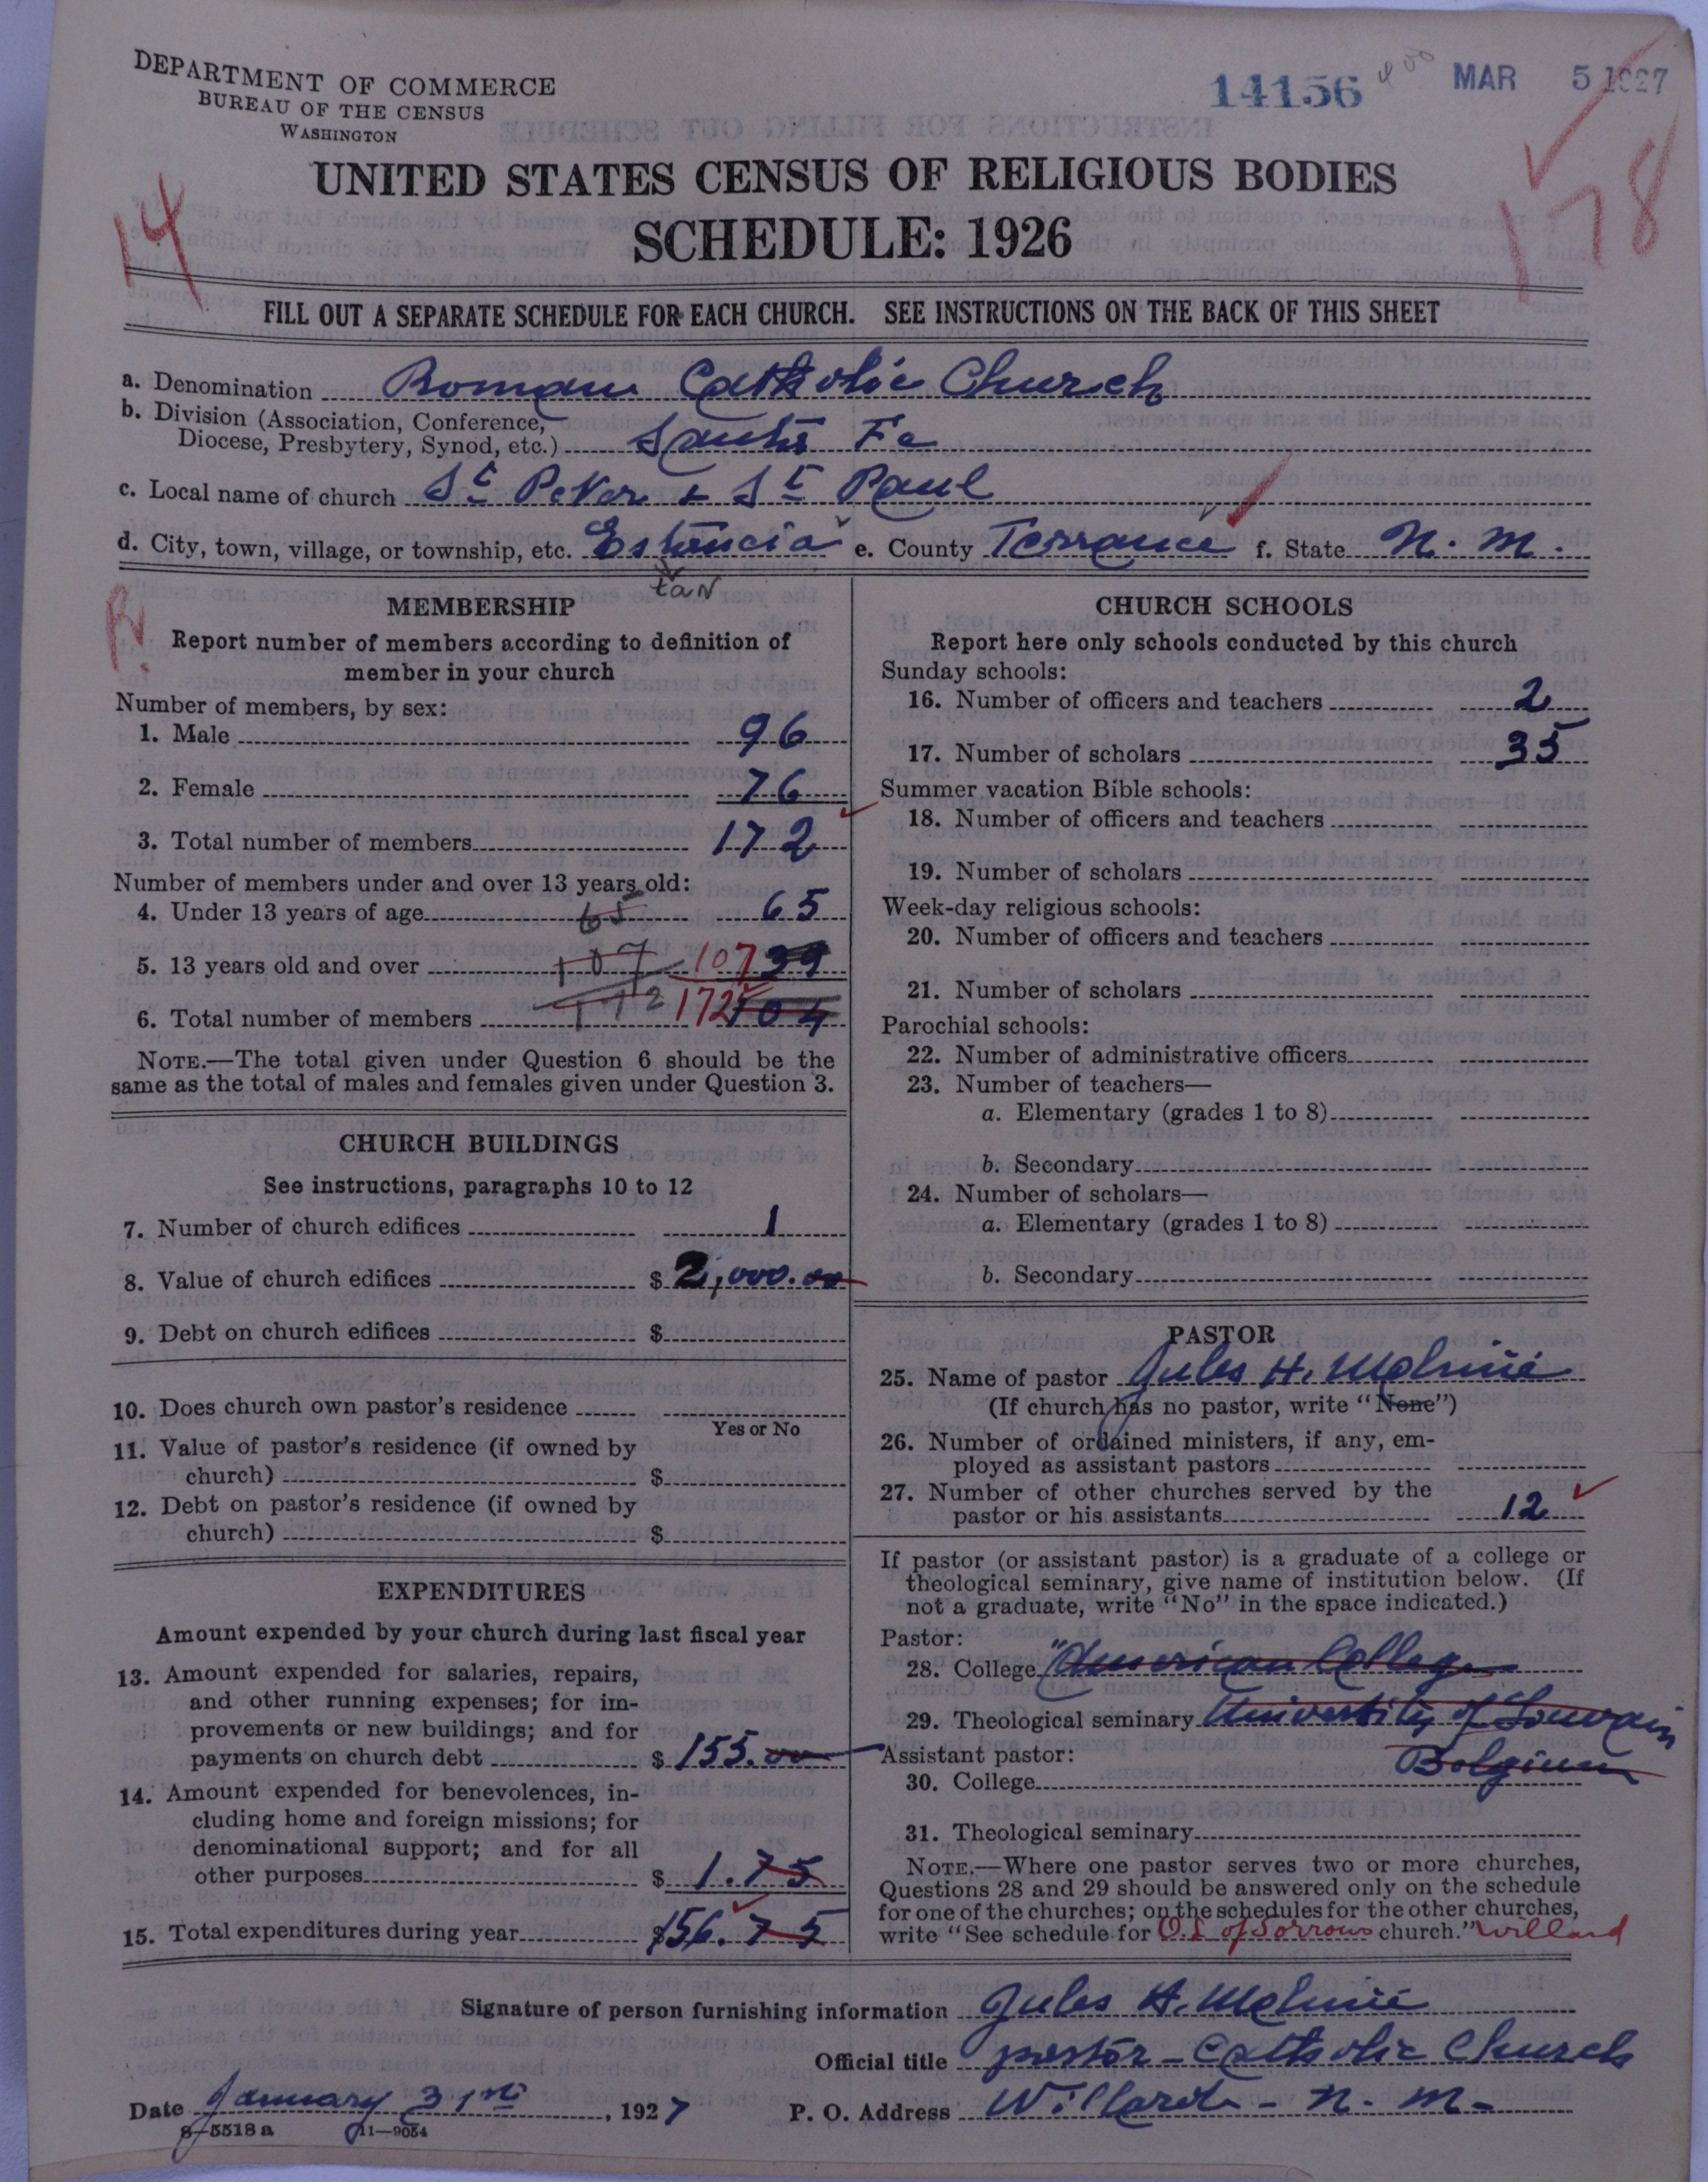 DEPARTMENT OF COMMERCE
BUREAU OF THE CENSUS
WASHINGTON
14156
MAR 5 1927
UNITED STATES CENSUS OF RELIGIOUS BODIES
SCHEDULE: 1926
14
178
FILL OUT A SEPARATE SCHEDULE FOR EACH CHURCH. SEE INSTRUCTIONS ON THE BACK OF THIS SHEET
a. Denomination Roman Catholic Church
b. Division (Association, Conference,
Diocese, Presbytery, Synod, etc.) Santa Fe
c. Local name of church St Peter + St Paul
d. City, town, village, or township, etc. Estancia e. County Torrance f. State N. M.
tan
MEMBERSHIP
Report number of members according to definition of
member in your church
Number of members, by sex:
1. Male 96
2. Female 76
3. Total number of members 172
Number of members under and over 13 years old:
4. Under 13 years of age 65 65
5. 13 years old and over 107 107 39
6. Total number of members 172 172 104
NOTE.—The total given under Question 6 should be the
same as the total of males and females given under Question 3.
CHURCH BUILDINGS
See instructions, paragraphs 10 to 12
7. Number of church edifices 1
8. Value of church edifices $ 2,000.00
9. Debt on church edifices $
10. Does church own pastor's residence
Yes or No
11. Value of pastor's residence (if owned by
church) $
12. Debt on pastor's residence (if owned by
church) $
EXPENDITURES
Amount expended by your church during last fiscal year
13. Amount expended for salaries, repairs,
and other running expenses; for im-
provements or new buildings; and for
payments on church debt $ 155.00
14. Amount expended for benevolences, in-
cluding home and foreign missions; for
denominational support; and for all
other purposes $ 1.75
15. Total expenditures during year $156.75
CHURCH SCHOOLS
Report here only schools conducted by this church
Sunday schools:
16. Number of officers and teachers 2
17. Number of scholars 35
Summer vacation Bible schools:
18. Number of officers and teachers
19. Number of scholars
Week-day religious schools:
20. Number of officers and teachers
21. Number of scholars
Parochial schools:
22. Number of administrative officers
23. Number of teachers—
a. Elementary (grades 1 to 8)
b. Secondary
24. Number of scholars—
a. Elementary (grades 1 to 8)
b. Secondary
PASTOR
25. Name of pastor Jules H. Molinié
(If church has no pastor, write "None")
26. Number of ordained ministers, if any, em-
ployed as assistant pastors
27. Number of other churches served by the
pastor or his assistants 12
If pastor (or assistant pastor) is a graduate of a college or
theological seminary, give name of institution below. (If
not a graduate, write "No" in the space indicated.)
Pastor:
28. College "American College
29. Theological seminary University of Louvain
Belgium
Assistant pastor:
30. College
31. Theological seminary
NOTE.—Where one pastor serves two or more churches,
Questions 28 and 29 should be answered only on the schedule
for one of the churches; on the schedules for the other churches,
write "See schedule for O.L. of Sorrows church." Willard
Signature of person furnishing information Jules H. Molinié
Official title pastor - Catholic Church
Date January 31st, 1927 P. O. Address Willard - N. M.
8-5518a 11-9054